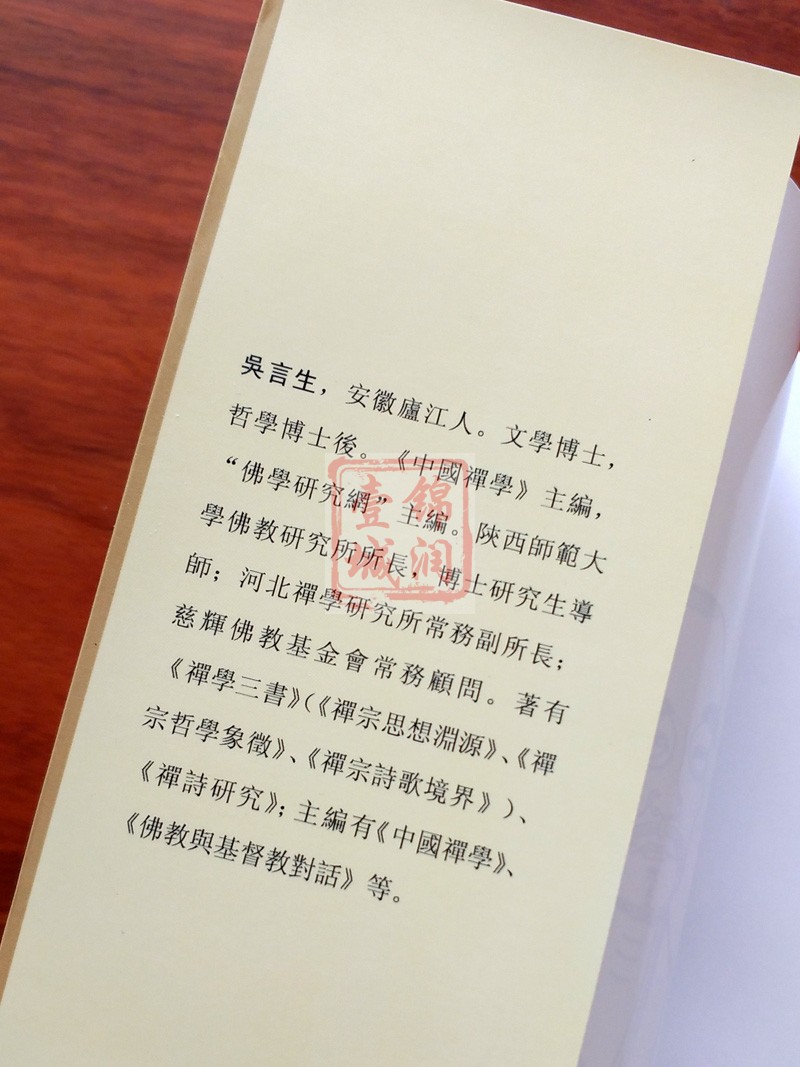 吳言生，安徽廬江人。文學博士，
哲學博士後。《中國禪學》主編，
“佛學研究網”主編。陝西師範大
學佛教研究所所長，博士研究生導
師；河北禪學研究所常務副所長；
慈輝佛教基金會常務顧問。著有
《禪學三書》(《禪宗思想淵源》、《禪
宗哲學象徵》、《禪宗詩歌境界》)、
《禪詩研究》；主編有《中國禪學》、
《佛教與基督教對話》等。
壹城
錦润